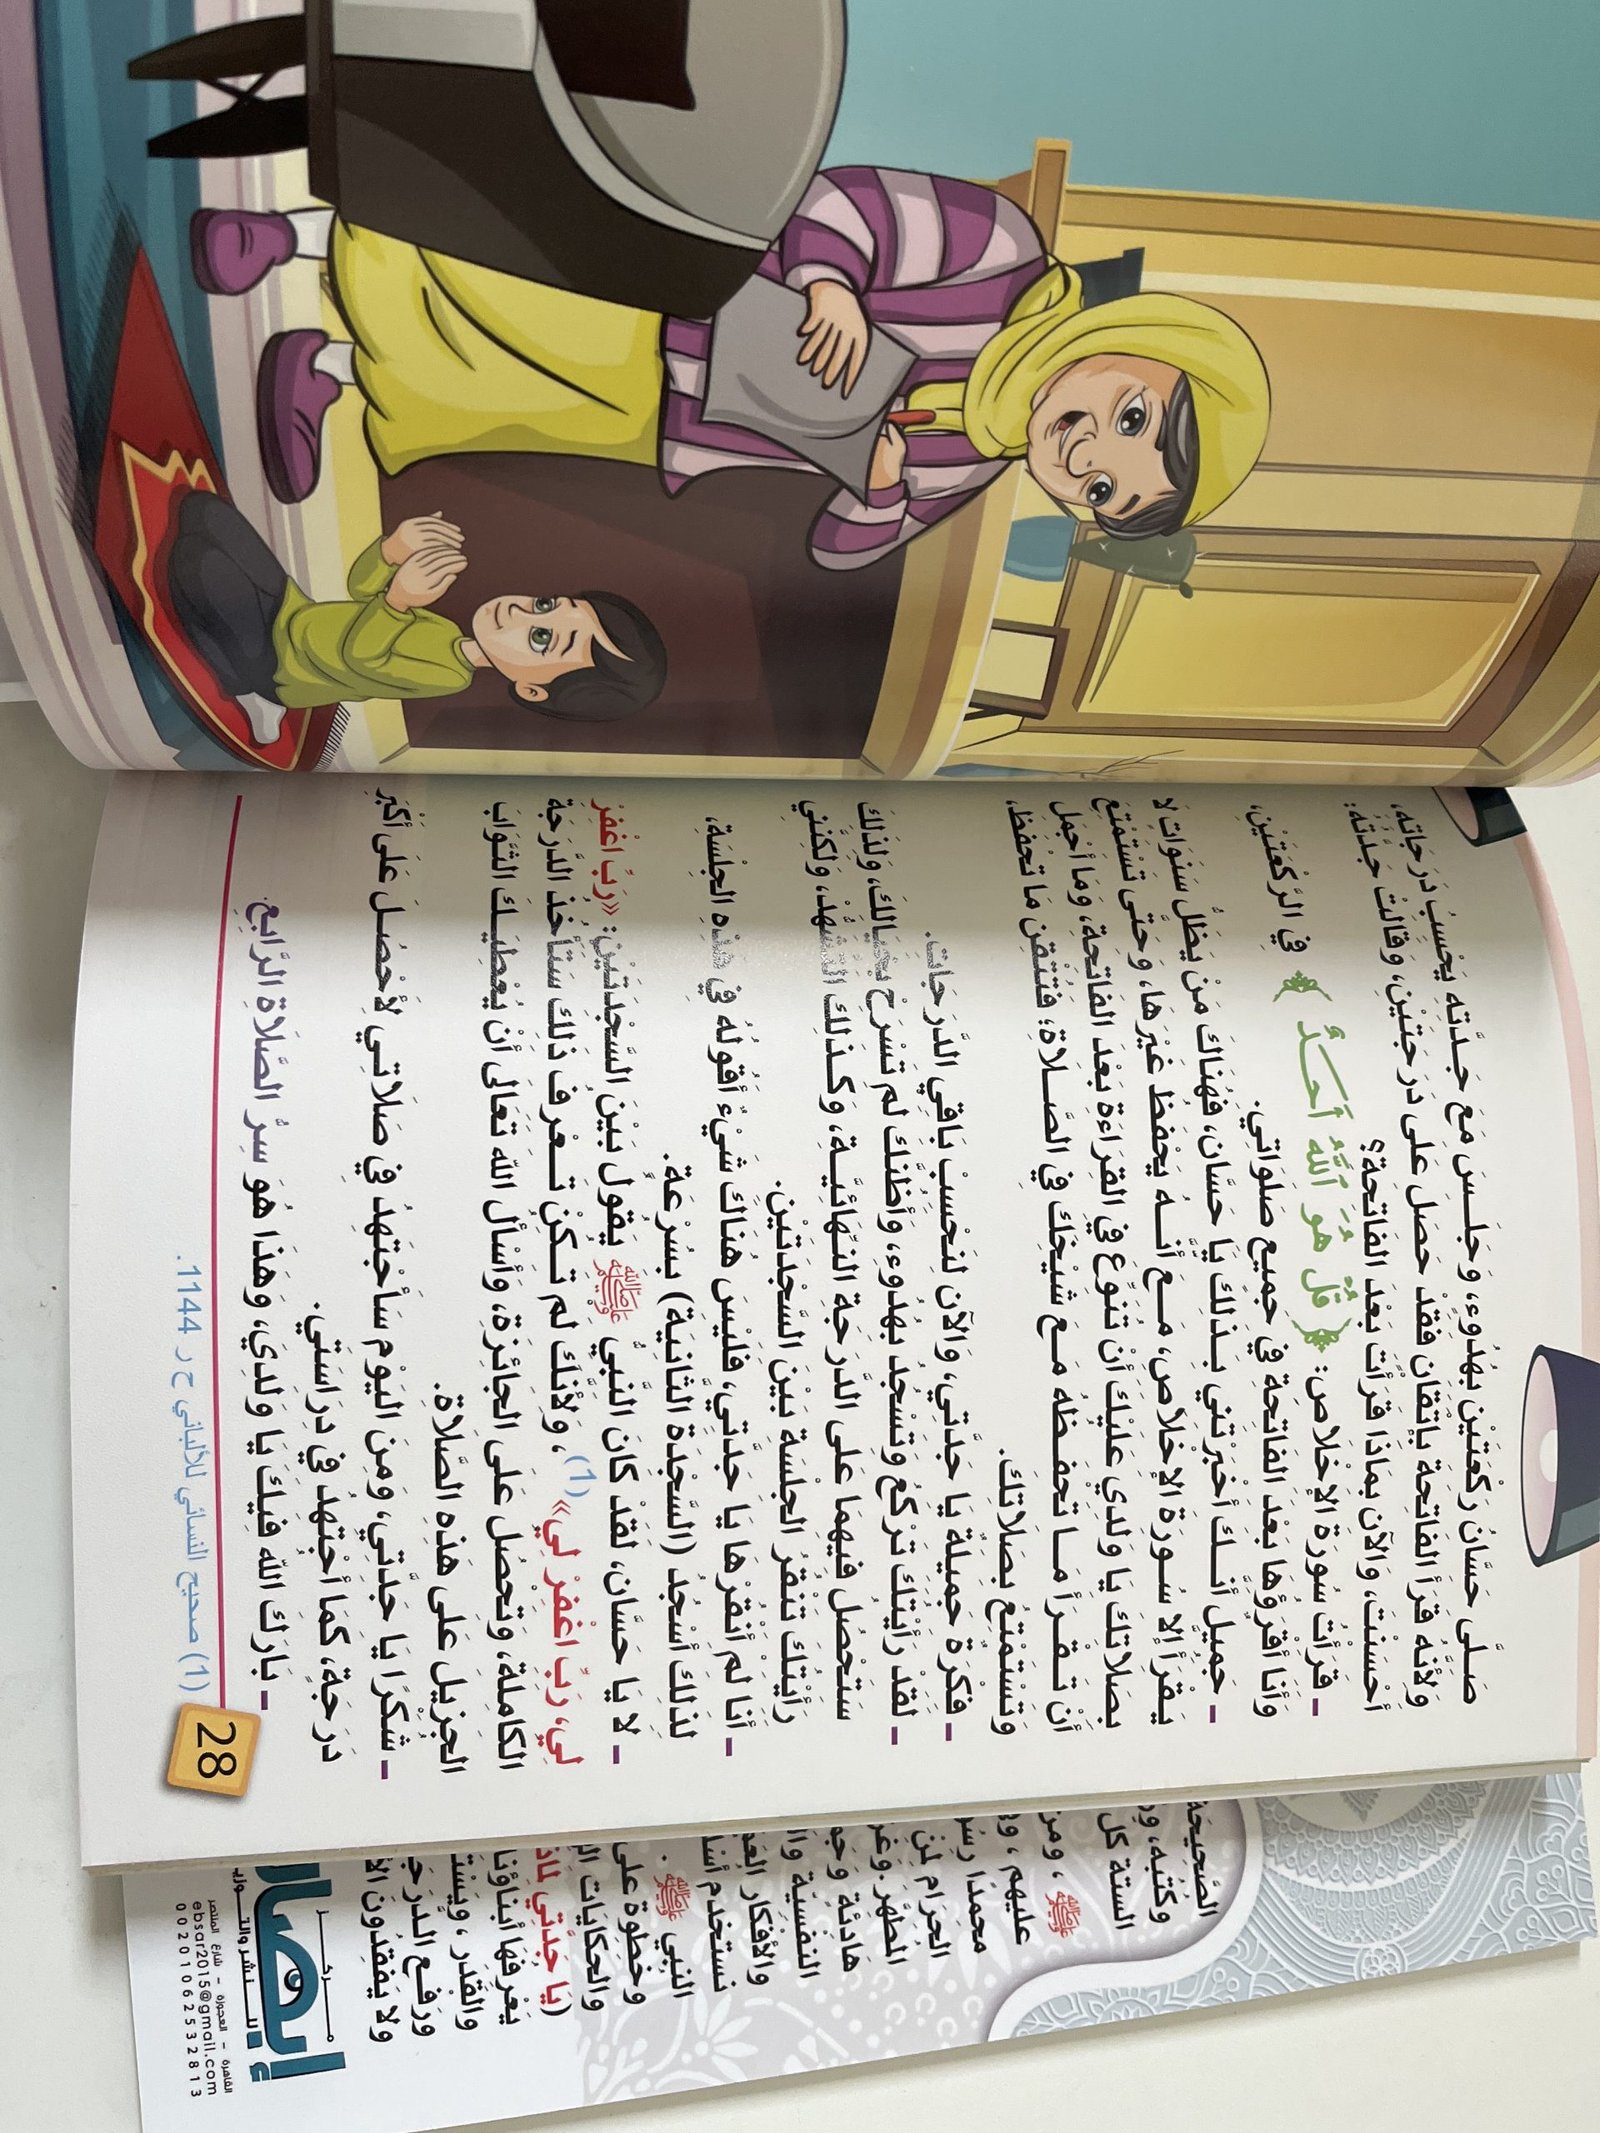 صَلَّى حَسَّانُ رَكْعَتَيْنِ بِهُدُوءٍ، وَجَلَسَ مَعَ جَدَّتِهِ يَحْسِبُ دَرَجَاتِهِ،
وَلِأَنَّهُ قَرَأَ الفَاتِحَةَ بِإِتْقَانٍ فَقَدْ حَصَلَ عَلَى دَرَجَتَيْنِ، وَقَالَتْ جَدَّتُهُ:
أَحْسَنْتَ، وَالآن بِمَاذَا قَرَأْتَ بَعْدَ الفَاتِحَةِ؟
- قَرَأْتُ سُورَةَ الإِخْلَاصِ: ﴿ قُلْ هُوَ اللَّهُ أَحَدٌ ﴾ فِي الرَّكْعَتَيْنِ،
وَأَنَا أَقْرَؤُهَا بَعْدَ الفَاتِحَةِ فِي جَمِيعِ صَلَوَاتِي.
- جَمِيلٌ أَنَّكَ أَخْبَرْتَنِي بِذَلِكَ يَا حَسَّان، فَهُنَاكَ مَنْ يَظَلُّ سَنَوَاتٍ لَا
يَقْرَأُ إِلَّا سُورَةَ الإِخْلَاصِ، مَعَ أَنَّهُ يَحْفَظُ غَيْرَهَا، وَحَتَّى تَسْتَمْتِعَ
بِصَلَاتِكَ يَا وَلَدِي عَلَيْكَ أَنْ تُنَوِّعَ فِي القِرَاءَةِ بَعْدَ الفَاتِحَةِ، وَمَا أَجْمَلَ
أَنْ تَقْرَأَ مَا تَحْفَظُهُ مَعَ شَيْخِكَ فِي الصَّلَاةِ؛ فَتُتْقِنَ مَا تَحْفَظُ،
وَتَسْتَمْتِعُ بِصَلَاتِكَ.
- فِكْرَةٌ جَمِيلَةٌ يَا جَدَّتِي، وَالآن لِنَحْسِبْ بَاقِي الدَّرَجَاتِ.
- لَقَدْ رَأَيْتُكَ تَرْكَعُ وَتَسْجُدُ بِهُدُوءٍ، وَأَظُنُّكَ لَمْ تَسْرَحْ بِخَيَالِكَ، وَلِذَلِكَ
سَتَحْصُلُ فِيهِمَا عَلَى الدَّرَجَةِ النِّهَائِيَّةِ، وَكَذَلِكَ التَّشَهُّدْ، وَلَكِنَّنِي
رَأَيْتُكَ تَنْقُرُ الجِلْسَةَ بَيْنَ السَّجْدَتَيْنِ.
- أَنَا لَمْ أَنْقُرْهَا يَا جَدَّتِي، فَلَيْسَ هُنَاكَ شَيْءٌ أَقُولُهُ فِي هَذِهِ الجِلْسَةِ،
لِذَلِكَ أَسْجُدُ (السَّجْدَةَ الثَّانِيَةَ) بِسُرْعَةٍ.
- لَا يَا حَسَّان، لَقَدْ كَانَ النَّبِيُّ ﷺ يَقُولُ بَيْنَ السَّجْدَتَيْنِ: «رَبِّ اغْفِرْ
لِي، رَبِّ اغْفِرْ لِي» (1)، وَلِأَنَّكَ لَمْ تَكُنْ تَعْرِفُ ذَلِكَ سَتَأْخُذُ الدَّرَجَةَ
الكَامِلَةَ، وَتَحْصُل عَلَى الجَائِزَةِ، وَأَسْأَلُ اللهَ تَعَالَى أَنْ يُعْطِيَكَ الثَّوَابَ
الجَزِيلَ عَلَى هَذِهِ الصَّلَاةِ.
- شُكْرًا يَا جَدَّتِي، وَمِنَ اليَوْمِ سَأَجْتَهِدُ فِي صَلَاتِي لِأَحْصُلَ عَلَى أَكْبَرِ
دَرَجَةٍ، كَمَا أَجْتَهِدُ فِي دِرَاسَتِي.
- بَارَكَ اللهُ فِيكَ يَا وَلَدِي، وَهَذَا هُوَ سِرُّ الصَّلَاةِ الرَّابِعِ.
(1) صحيح النسائي للألباني ح ر 1144.
28
الصَّحِيحَة
وَكُتُبِه، وَر
الستة كل
ﷺ، ومن
عليهم، و
محمدًا رسُ
الحَرَام لمن
المُطهَّر. وَغر
هَادئَة وَجم
النفسيّة وال
والأفكار العَمـ
نستخدم أسَا
النبي ﷺ.
وخطوة على
والحكايات ال
(يَا جَدَّتِي لماذ
يَعْرفهَا أبناؤنا
والقدر، وَيَسْت
وَرَفع الدَّرَج
ولا يَفقدُون الأ
مركز
إبصار
للنشر والتوزيع
القاهرة - العجوزة - شارع المنتصر
ebsar2015@gmail.com
00201062532813